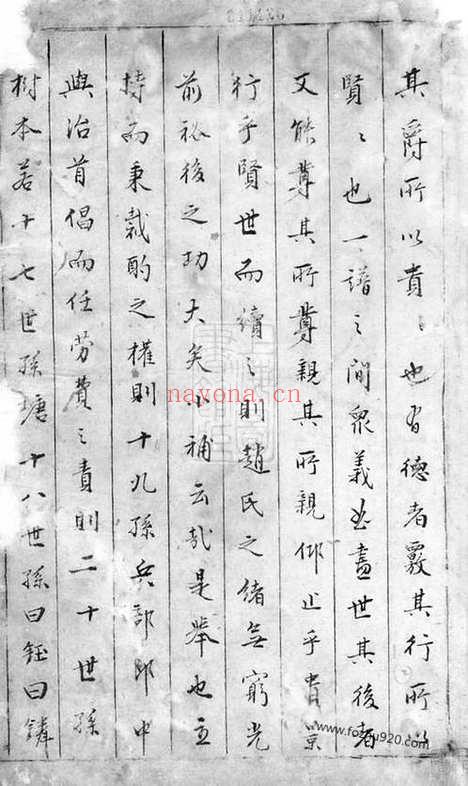 其爵所以貴〻也有德者覈其行所以
賢〻也一譜之間衆義悉盡世其後者
又能尊其所尊親其所親仰止乎景
行乎賢世而續之則趙氏之緒無窮光
前祕後之功大矣小補云哉是舉也主
持而秉裁酌之權則十九孫兵部郎中
與治首倡而任勞費之責則二十世孫
樹本若十七世孫塘十八世孫曰鈺曰鏻
nayona.cn
www.foxfu920.com